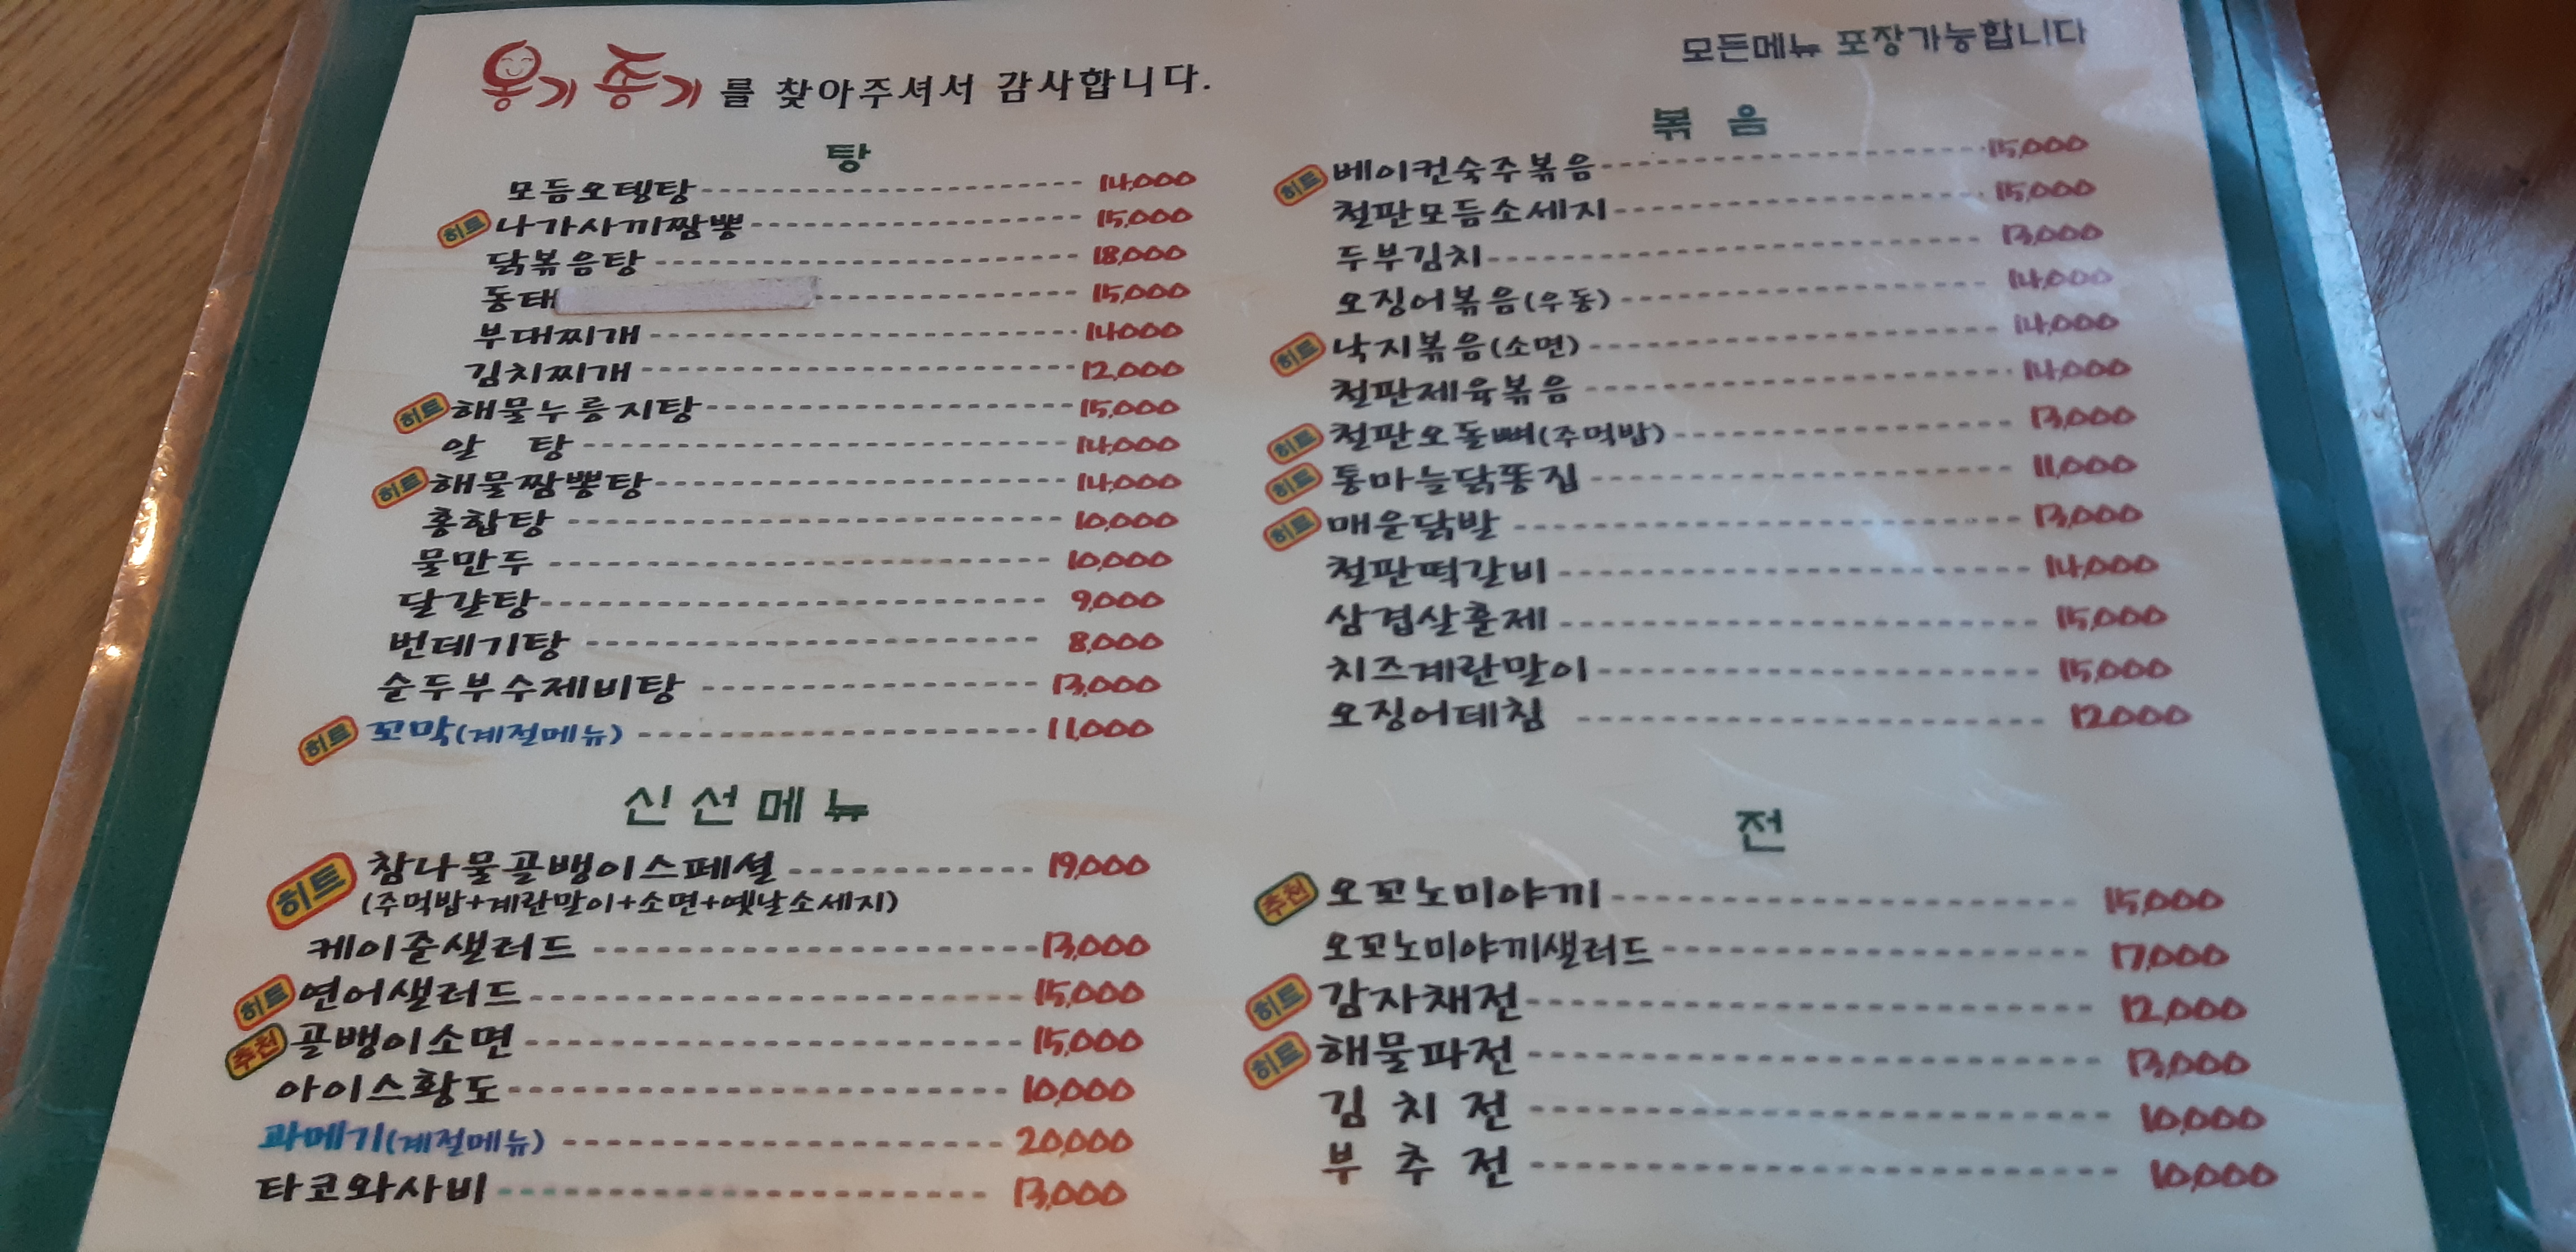 옹기종기를 찾아주셔서 감사합니다.
모든메뉴 포장가능합니다
탕
모듬오뎅탕 14,000
히트 나가사끼짬뽕 15,000
닭볶음탕 18,000
동태 15,000
부대찌개 14,000
김치찌개 12,000
히트 해물누룽지탕 15,000
알 탕 14,000
히트 해물짬뽕탕 14,000
홍합탕 10,000
물만두 10,000
달걀탕 9,000
번데기탕 8,000
순두부수제비탕 13,000
히트 꼬막(계절메뉴) 11,000
신선메뉴
히트 참나물골뱅이스페셜 19,000
(주먹밥+계란말이+소면+옛날소세지)
케이준샐러드 13,000
히트 연어샐러드 15,000
추천 골뱅이소면 15,000
아이스황도 10,000
과메기(계절메뉴) 20,000
타코와사비 13,000
볶음
히트 베이컨숙주볶음 15,000
철판모듬소세지 15,000
두부김치 13,000
오징어볶음(우동) 14,000
히트 낙지볶음(소면) 14,000
철판제육볶음 14,000
히트 철판오돌뼈(주먹밥) 13,000
히트 통마늘닭똥집 11,000
히트 매운닭발 13,000
철판떡갈비 14,000
삼겹살훈제 15,000
치즈계란말이 15,000
오징어데침 12,000
전
추천 오꼬노미야끼 15,000
오꼬노미야끼샐러드 17,000
히트 감자채전 12,000
히트 해물파전 13,000
김 치 전 10,000
부 추 전 10,000